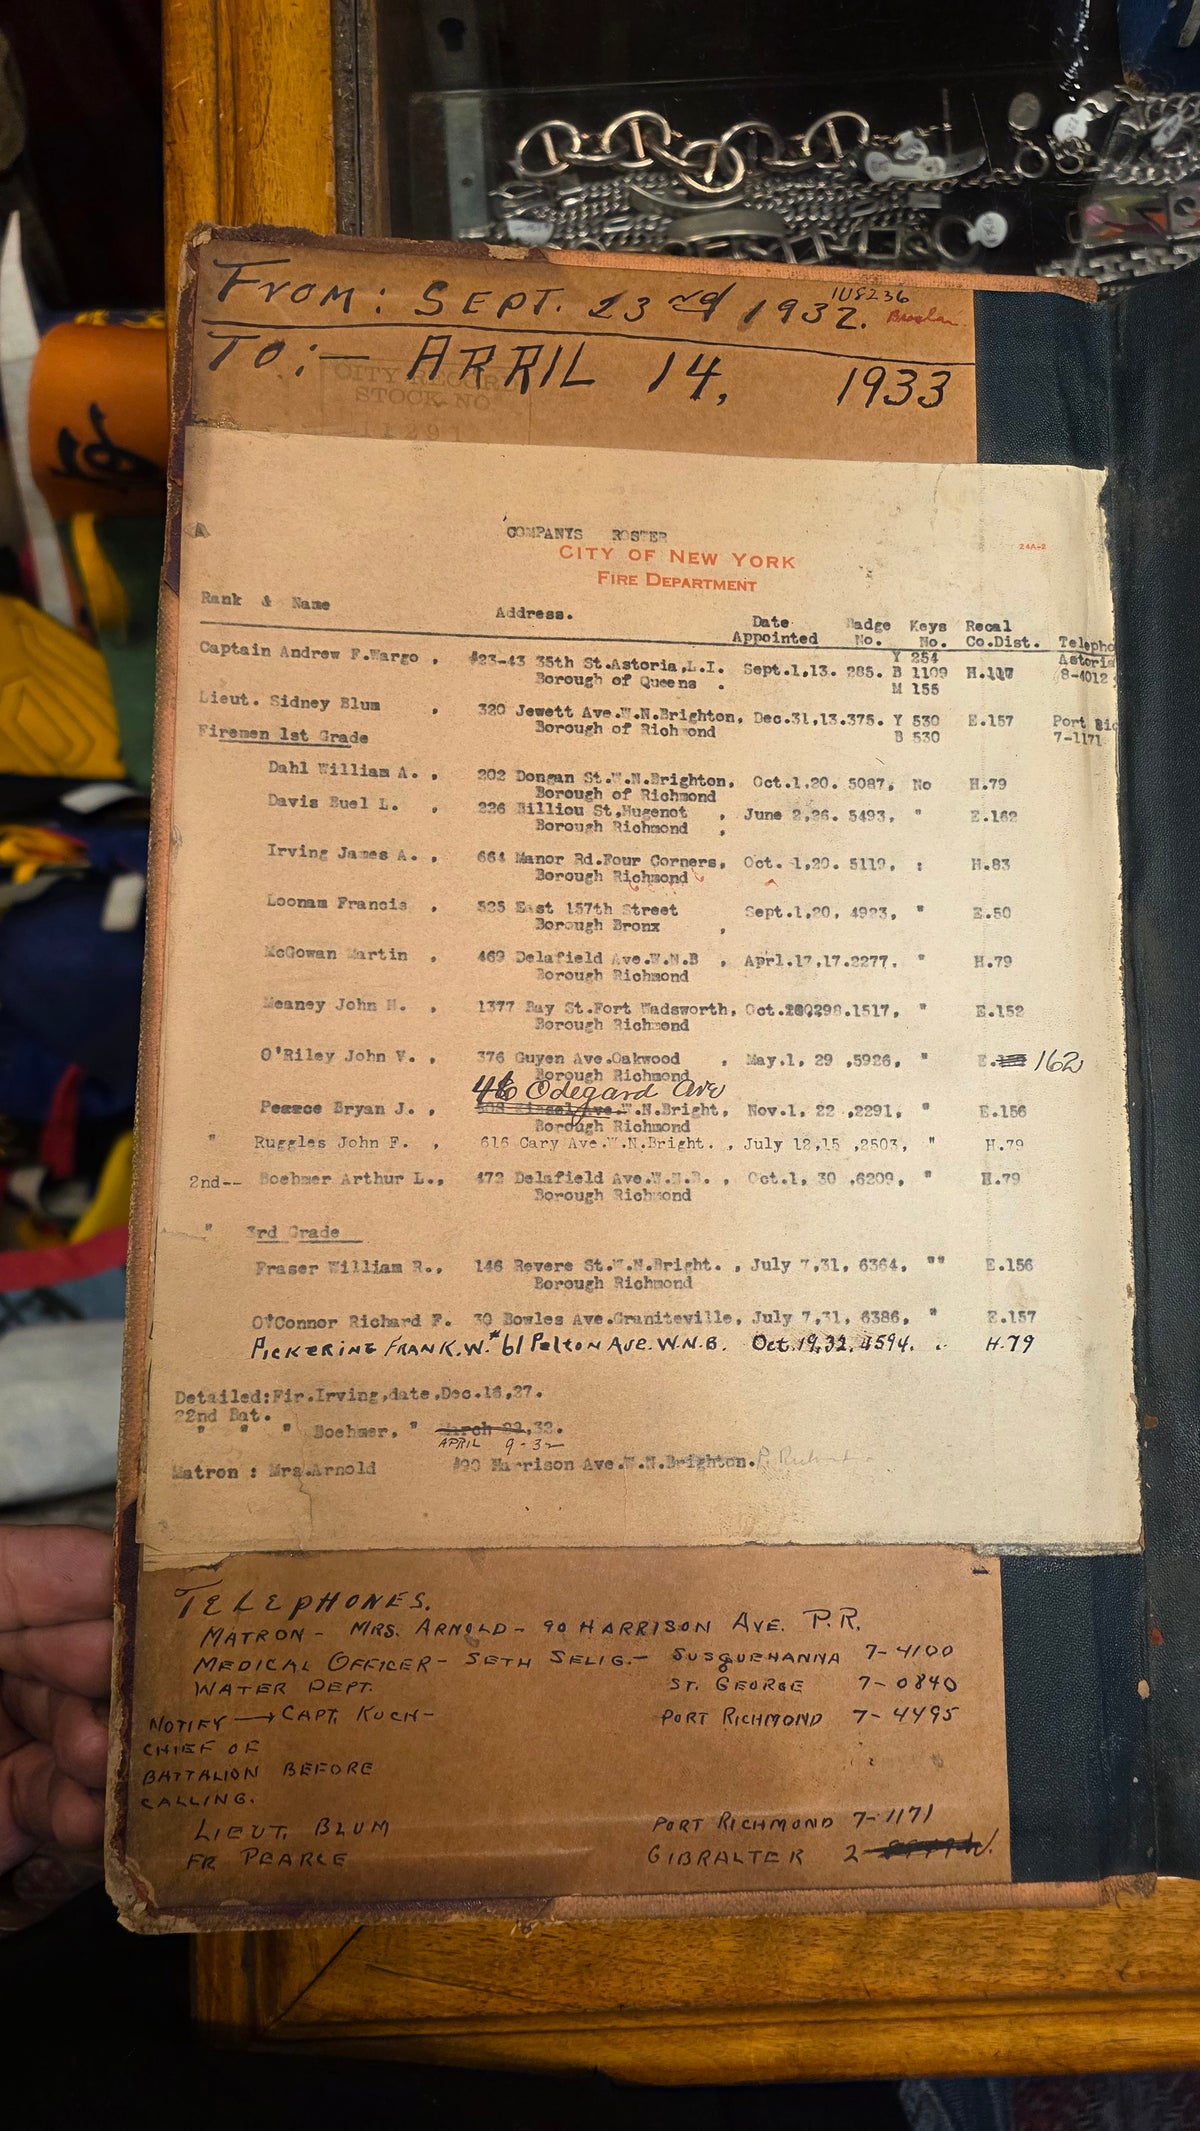 FROM: SEPT. 23rd 1932.
TO:— APRIL 14, 1933
CITY RECORD
STOCK NO
11291
COMPANYS ROSTER
CITY OF NEW YORK
24A-2
FIRE DEPARTMENT
Rank & Name Address. Date Appointed Badge No. Keys No. Recal Co.Dist. Telepho
Captain Andrew F.Wargo , #23-43 35th St.Astoria,L.I. Sept.1,13. 285. Y 254 B 1109 M 155 H.117 Astoria 8-4012
Borough of Queens .
Lieut. Sidney Blum , 320 Jewett Ave.W.N.Brighton, Dec.31,13.375. Y 530 B 530 E.157 Port Ric 7-1171
Borough of Richmond
Firemen 1st Grade
Dahl William A. , 202 Dongan St.W.N.Brighton, Oct.1,20. 5087, No H.79
Borough of Richmond
Davis Buel L. , 226 Billiou St,Hugenot , June 2,26. 5493, " E.162
Borough Richmond ,
Irving James A. , 664 Manor Rd.Four Corners, Oct. 1,20. 5119, : H.83
Borough Richmond
Loonam Francis , 525 East 157th Street Sept.1,20, 4923, " E.50
Borough Bronx ,
McGowan Martin , 469 Delafield Ave.W.N.B , Aprl.17,17.2277. " H.79
Borough Richmond
Meaney John H. , 1377 Bay St.Fort Wadsworth, Oct. .1517, " E.152
Borough Richmond
O'Riley John V. , 376 Guyen Ave.Oakwood , May.1, 29 ,5926, " E. 162
Borough Richmond
46 Odegard Ave
Pearce Bryan J. , W.N.Bright, Nov.1, 22 ,2291, " E.156
Borough Richmond
" Ruggles John F. , 616 Cary Ave.W.N.Bright. , July 12,15 ,2503, " H.79
2nd-- Boehmer Arthur L., 472 Delafield Ave.W.N.B. , Oct.1, 30 ,6209, " H.79
Borough Richmond
" 3rd Grade
Fraser William R., 146 Revere St.W.N.Bright. , July 7,31, 6364, "" E.156
Borough Richmond
O'Connor Richard F. 30 Bowles Ave.Graniteville, July 7,31, 6386, " E.157
PICKERING FRANK.W. #61 Pelton Ave. W.N.B. Oct.19,32. 4594. .. H.79
Detailed:Fir.Irving,date,Dec.16,27.
22nd Bat.
" " " Boehmer, " March 22,32.
APRIL 9-32
Matron : Mrs.Arnold #90 Harrison Ave.W.N.Brighton.
TELEPHONES.
MATRON - MRS. ARNOLD - 90 HARRISON AVE. P.R.
MEDICAL OFFICER - SETH SELIG. - SUSQUEHANNA 7-4100
WATER DEPT. ST. GEORGE 7-0840
NOTIFY → CAPT. KOCH - PORT RICHMOND 7-4495
CHIEF OF
BATTALION BEFORE
CALLING.
LIEUT. BLUM PORT RICHMOND 7-1171
FR PEARCE GIBRALTER 2